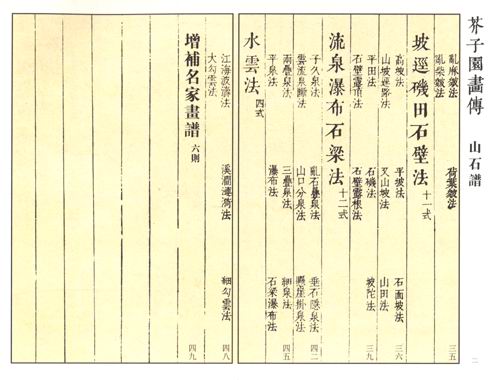 芥子園畫傳 山石譜 二
亂麻皴法 荷葉皴法 三五
亂柴皴法
坡逕磯田石壁法 十一式
高坡法 平坡法 石面坡法 三六
山坡逕路法 又山坡法 山田法
平田法 石磯法 坡陀法 三九
石壁露頂法 石壁露根法
流泉瀑布石梁法 十二式
子久泉法 亂石疊泉法 垂石隱泉法 四二
雲流泉斷法 山口分泉法 懸崖掛泉法
兩疊泉法 三疊泉法 細泉法 四五
平泉法 瀑布法 石梁瀑布法
水雲法 四式
江海波濤法 溪澗漣漪法 細勾雲法 四八
大勾雲法
增補名家畫譜 六則 四九